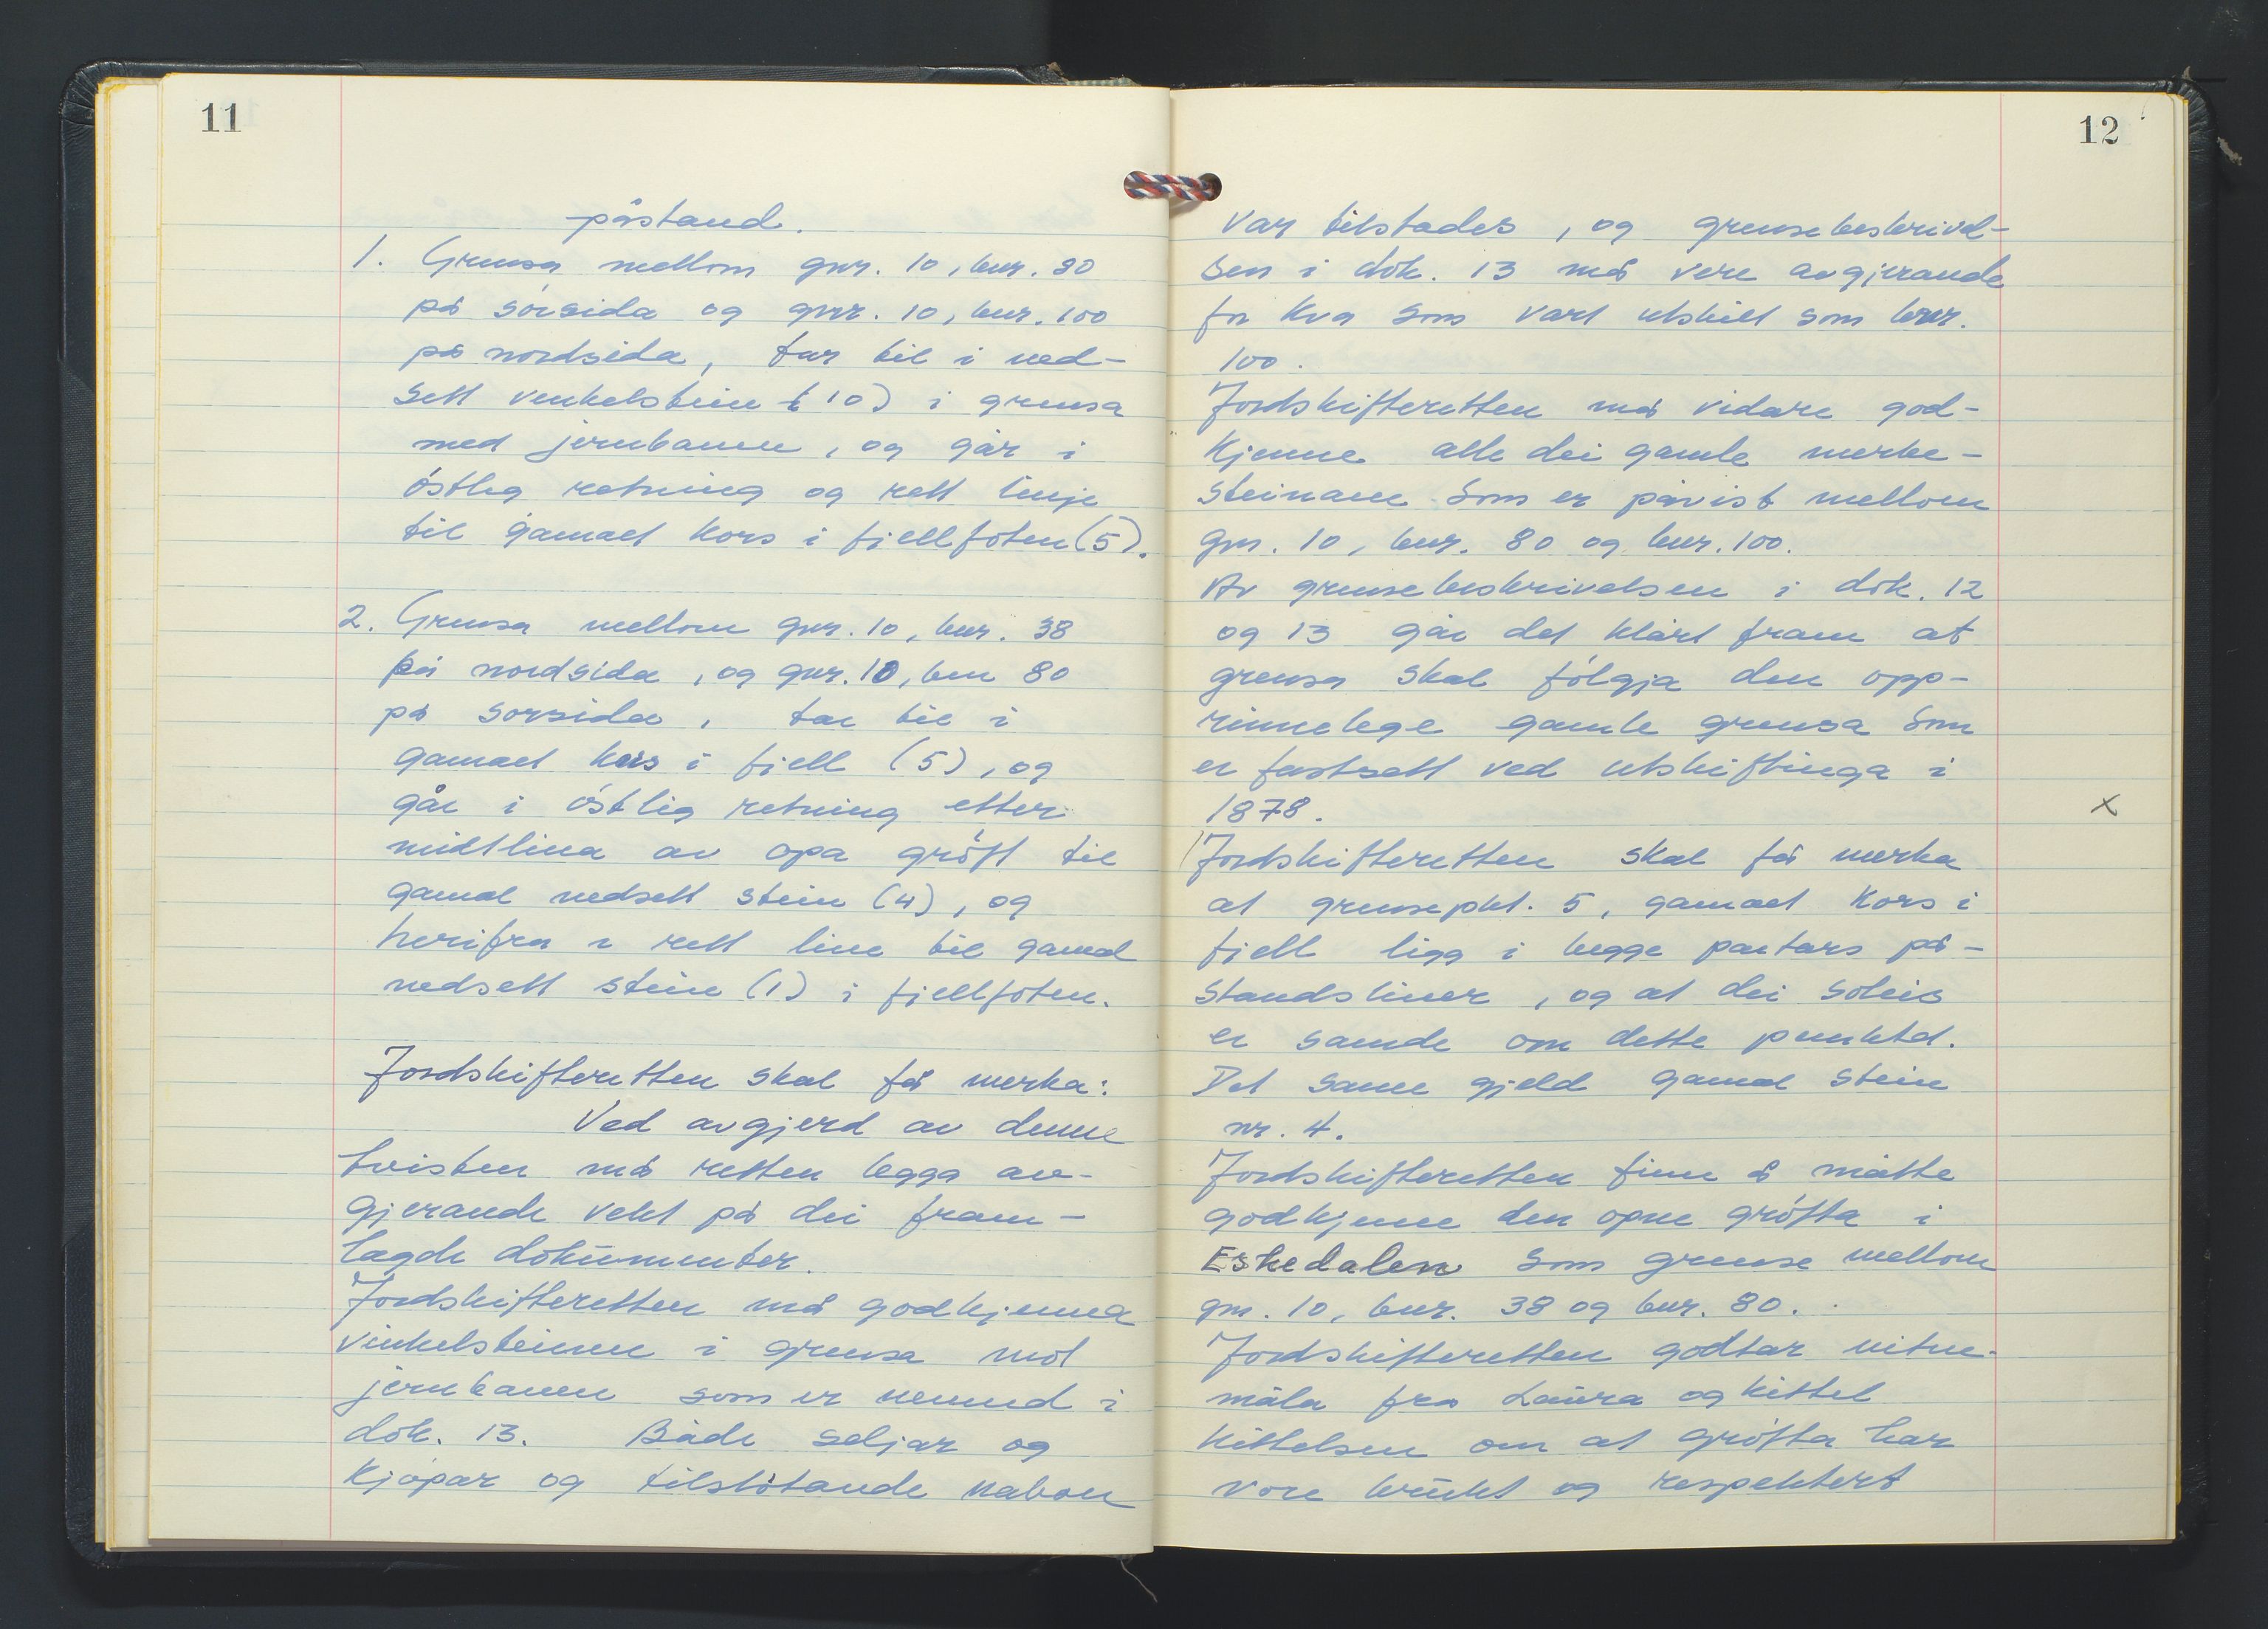 11
påstand.
1. Grensa mellom gnr. 10, bnr. 80
på sørsida og gnr. 10, bnr. 100
på nordsida, tar til i ned-
sett venkelstein (10) i grensa
med jernbanen, og går i
østleg retning og rett linje
til gamalt kors i fjellfoten (5).
2. Grensa mellom gnr. 10, bnr. 38
på nordsida, og gnr. 10, bnr 80
på sørsida, tar til i
gamalt kors i fjell (5), og
går i østlig retning etter
midtlina av opa grøft til
gamal nedsett stein (4), og
herifra i rett line til gamal
nedsett stein (1) i fjellfoten.
Jordskifteretten skal få merka:
Ved avgjerd av denne
tvisten må retten legga av-
gjerande vekt på dei fram-
lagde dokumenter.
Jordskifteretten må godkjenna
vinkelsteinen i grensa mot
jernbanen som er nemnd i
dok. 13. Både seljar og
kjøpar og tilstøtande naboer
12
var tilstades, og grensebeskrivel-
sen i dok. 13 må vere avgjerande
for kva som vart utskilt som bnr.
100.
Jordskifteretten må vidare god-
kjenne alle dei gamle merke-
steinane som er påvist mellom
gnr. 10, bnr. 80 og bnr. 100.
Av grensebeskrivelsen i dok. 12
og 13 går det klårt fram at
grensa skal følgja den opp-
rinnelege gamle grensa som
er fastsett ved utskiftinga i
1878.
x
Jordskifteretten skal få merka
at grensepkt. 5, gamalt kors i
fjell ligg i begge partars på-
standsliner, og at dei soleis
er samde om dette punktet.
Det same gjeld gamal stein
nr. 4.
Jordskifteretten finn å måtte
godkjenne den opne grøfta i
Eskedalen som grense mellom
gnr. 10, bnr. 38 og bnr. 80.
Jordskifteretten godtar vitne-
måla fra Laura og Kittel
Kittelsen om at grøfta har
vore brukt og respektert